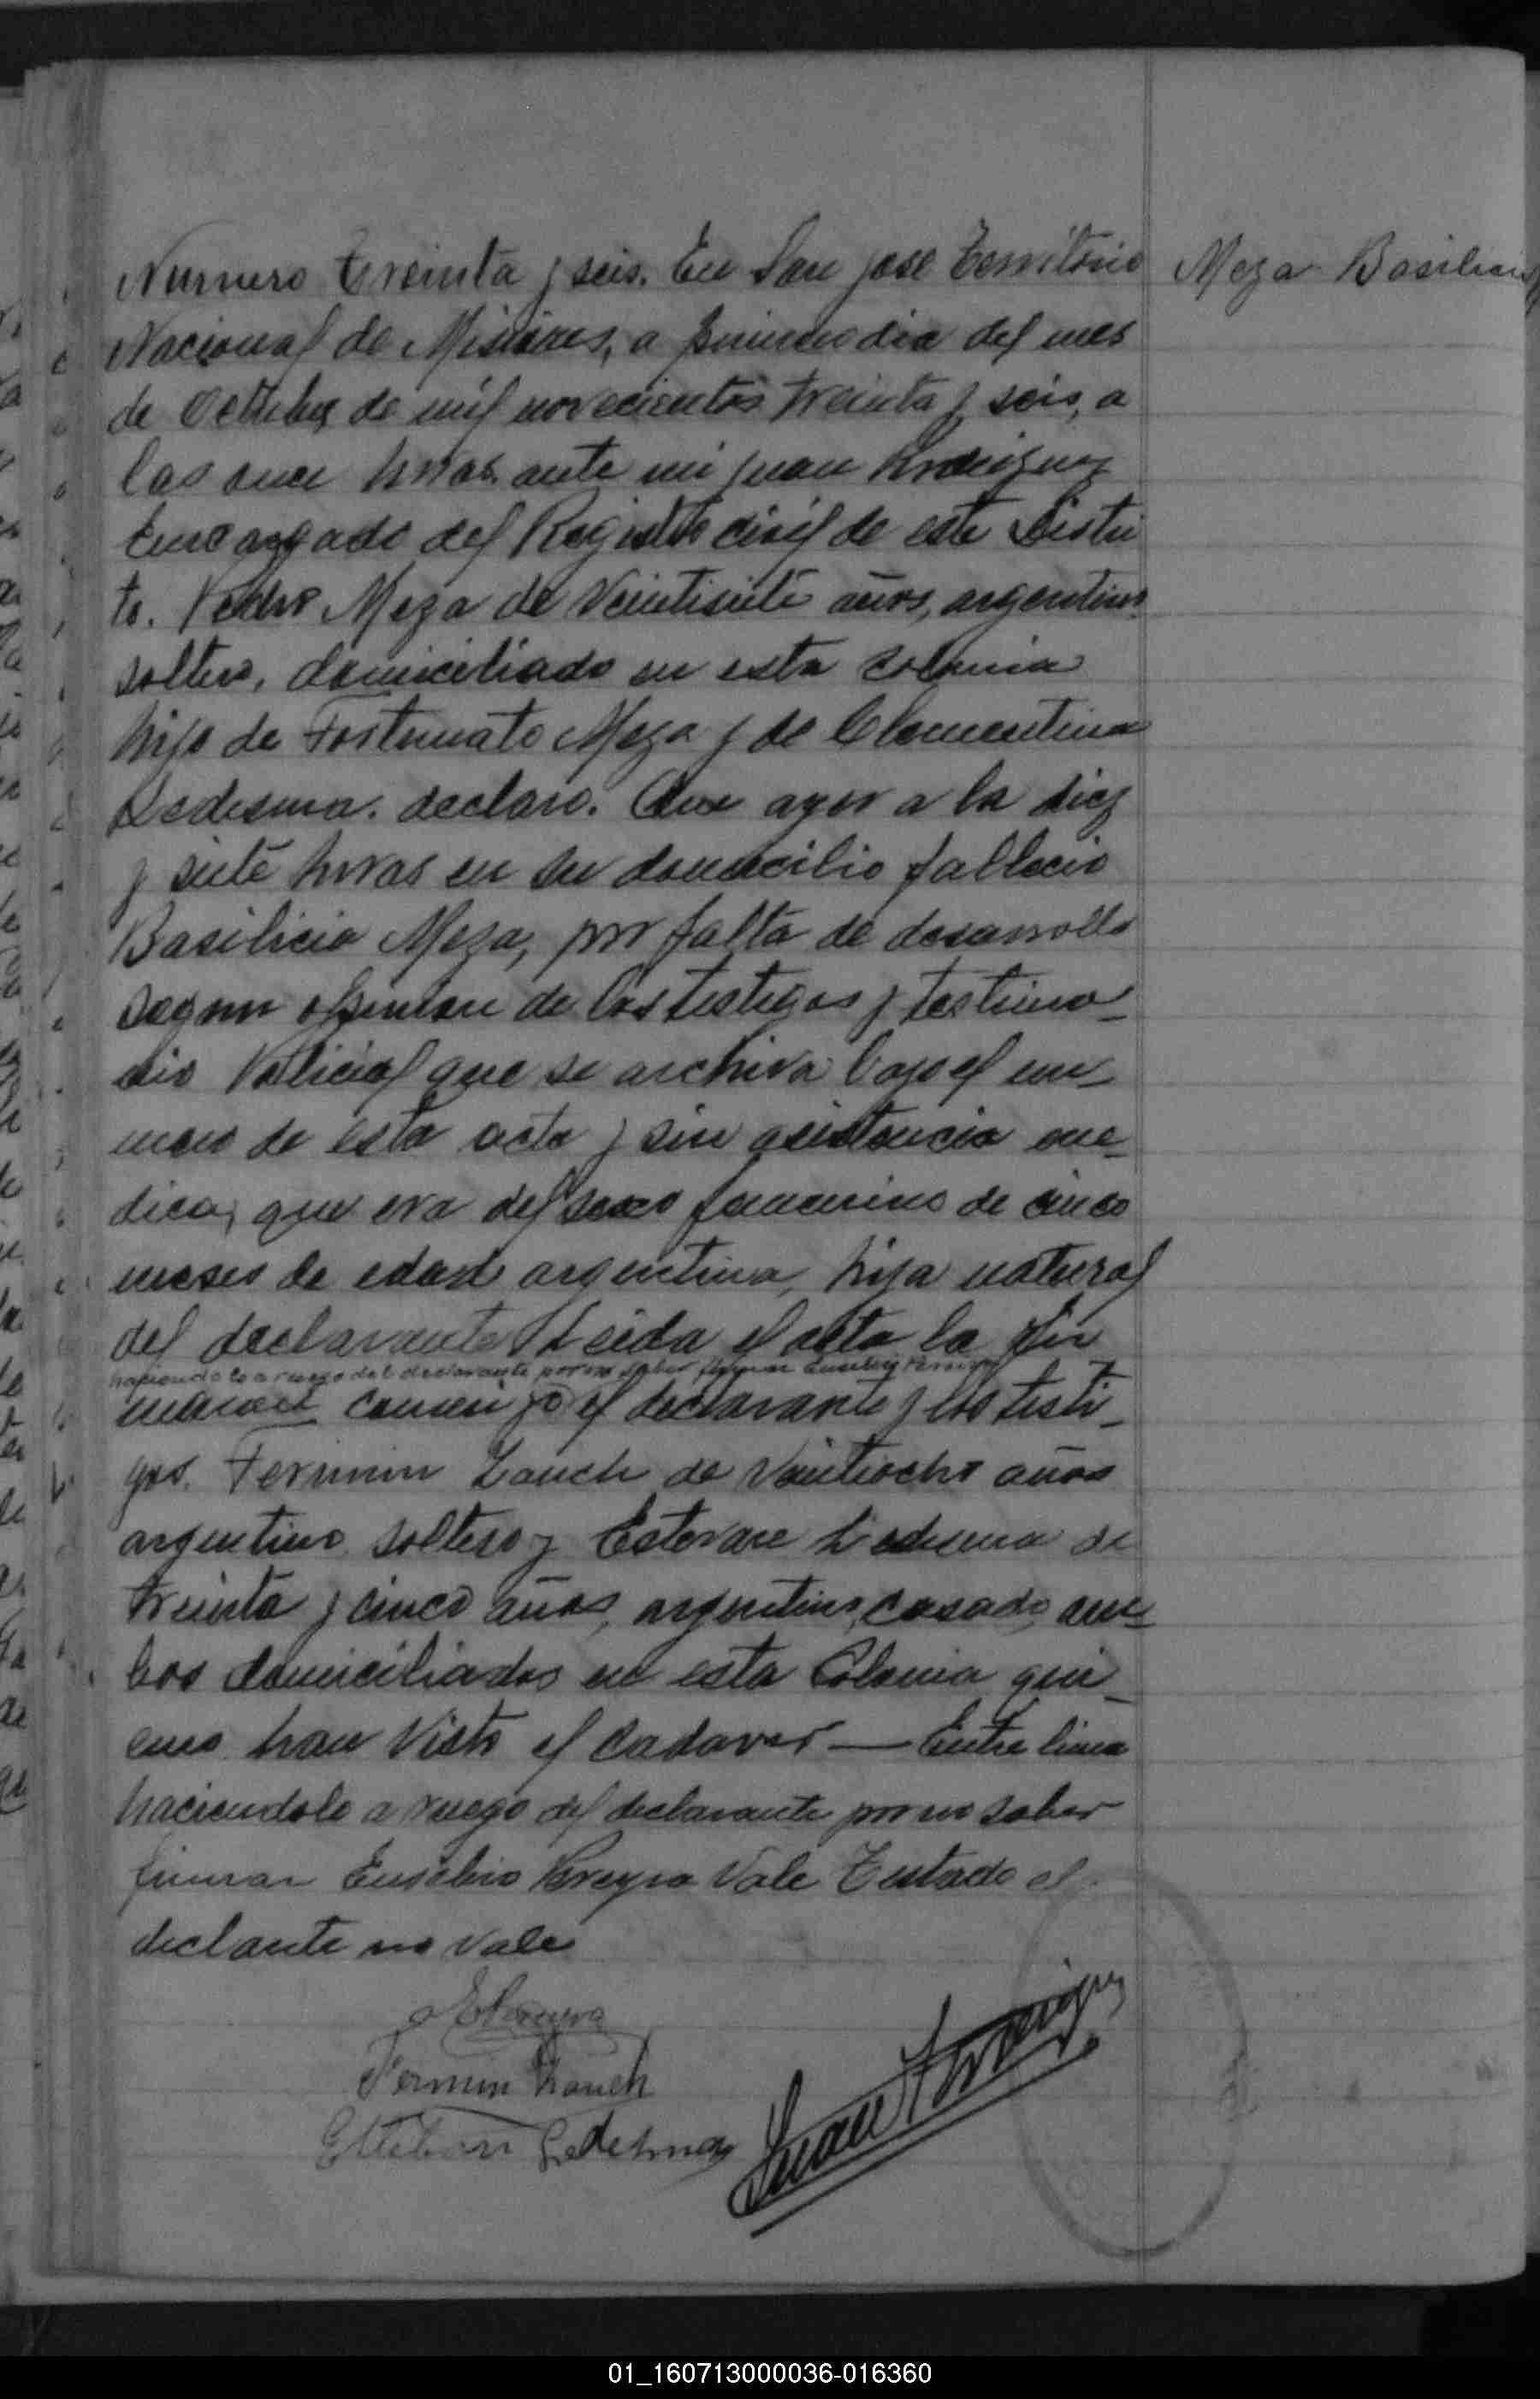 Numero treinta y seis. En San jose Territorio
Meza Basilicia
Nacional de Misiones, a primero dia del mes
de Octubre de mil novecientos treinta y seis, a
las once horas ante mi Juan Rodriguez
Encargado del Registro civil de este Distri
to. Pedro Meza de Veintisiete años, argentino
soltero, domiciliado en esta colonia
hijo de Fortunato Meza y de Clementina
Ledesma. declaro. Que ayer a la diez
y siete horas en su domicilio fallecio
Basilicia Meza, por falta de desarrollo
segun opinion de los testigos y testimo-
nio Policial que se archiva bajo el nu-
mero de esta acta y sin asistencia me-
dica, que era del sexo femenino de cinco
meses de edad argentina, hija natural
del declarante Leida el acta la fir
haciendolo a ruego del declarante por no saber firmar Eusebio Pereyra
maron conmigo el declarante y los testi-
gos. Fermin Zanch de Veintiocho años
argentino soltero y Estevan Ledesma de
treinta y cinco años, argentino, casado, am-
bos domiciliados en esta Colonia qui-
enes han Visto el Cadaver — Entre linea
haciendolo a ruego del declarante por no saber
firmar Eusebio Pereyra Vale Testado el
declante no vale
Fermin Zanch
Esteban Ledesma
Juan Rodriguez
01_160713000036-016360